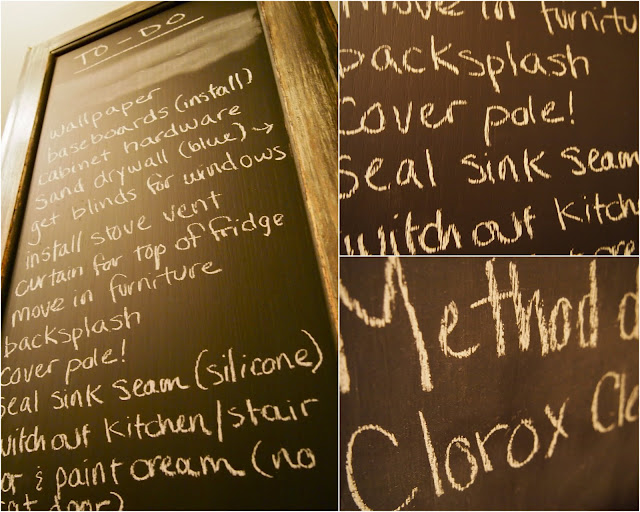 TO-DO
wallpaper
baseboards (install)
cabinet hardware
sand drywall (blue) →
get blinds for windows
install stove vent
curtain for top of fridge
move in furniture
backsplash
cover pole!
seal sink seam (silicone)
witch out kitchen/stair
or & paint cream (no
cat door)
move in furnitu
backsplash
cover pole!
seal sink seam
witch out kitchen
Method
Clorox Cl